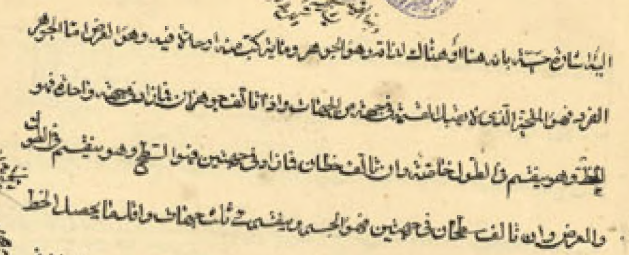 اليه اشارة حسية بانه هنا أو هناك لذاته وهو الجوهر وما يتركب منه او حالا فيه وهو العرض اما الجوهر
الفرد فهو المتحيز الذى لا يقبل القسمة فى جهة من الجهات واذا تألف جوهران فازاد فى جهة واحدة فهو
الخط وهو ينقسم فى الطول خاصة وان تألف خطان فازاد فى جهتين فهو السطح وهو ينقسم فى الطول
والعرض وان تألف سطحان فى جهتين فهو الجسم وينقسم فى ثلث جهات واقل ما يحصل الخط